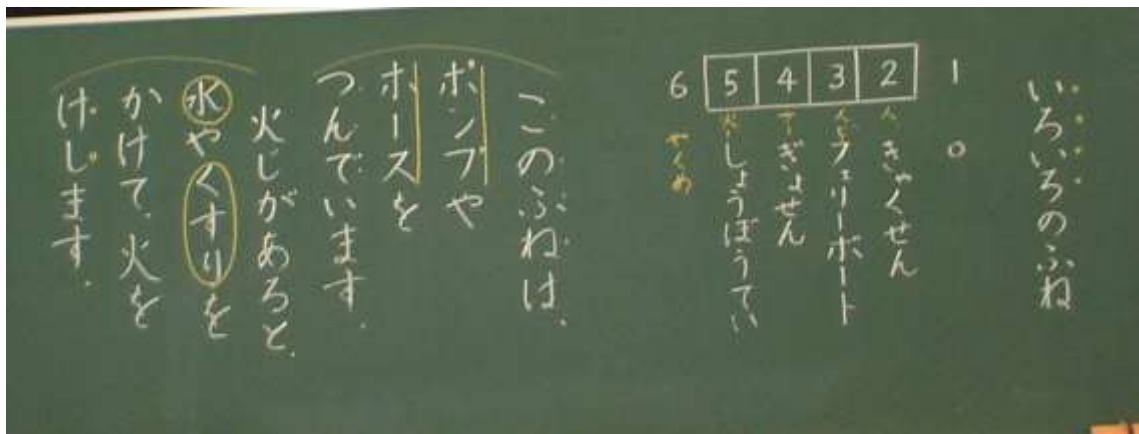 いろいろのふね
1 0
2 人 きゃくせん
3 人と フェリーボート
4 ぎょせん
5 火 しょうぼうてい
6 やくめ
このふねは、
ポンプや
ホースを
つんでいます。
火じがあると、
水やくすりを
かけて、火を
けします。